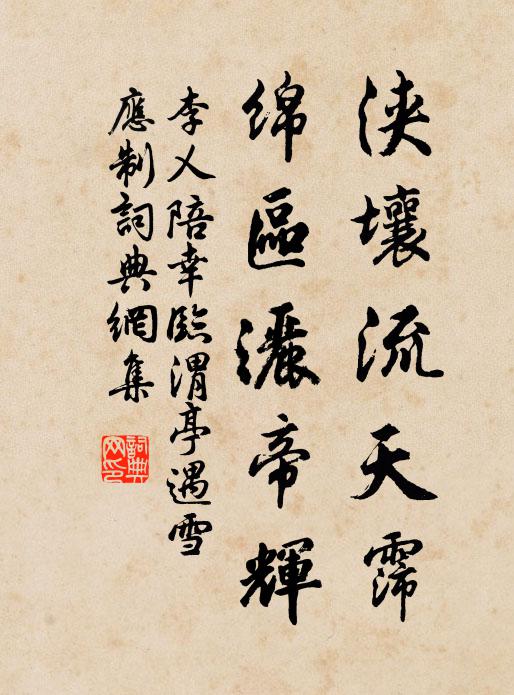 浹壤流天霈
綿區灑帝輝
李乂陪幸臨渭亭遇雪
應制詞典網集
詞典
网印